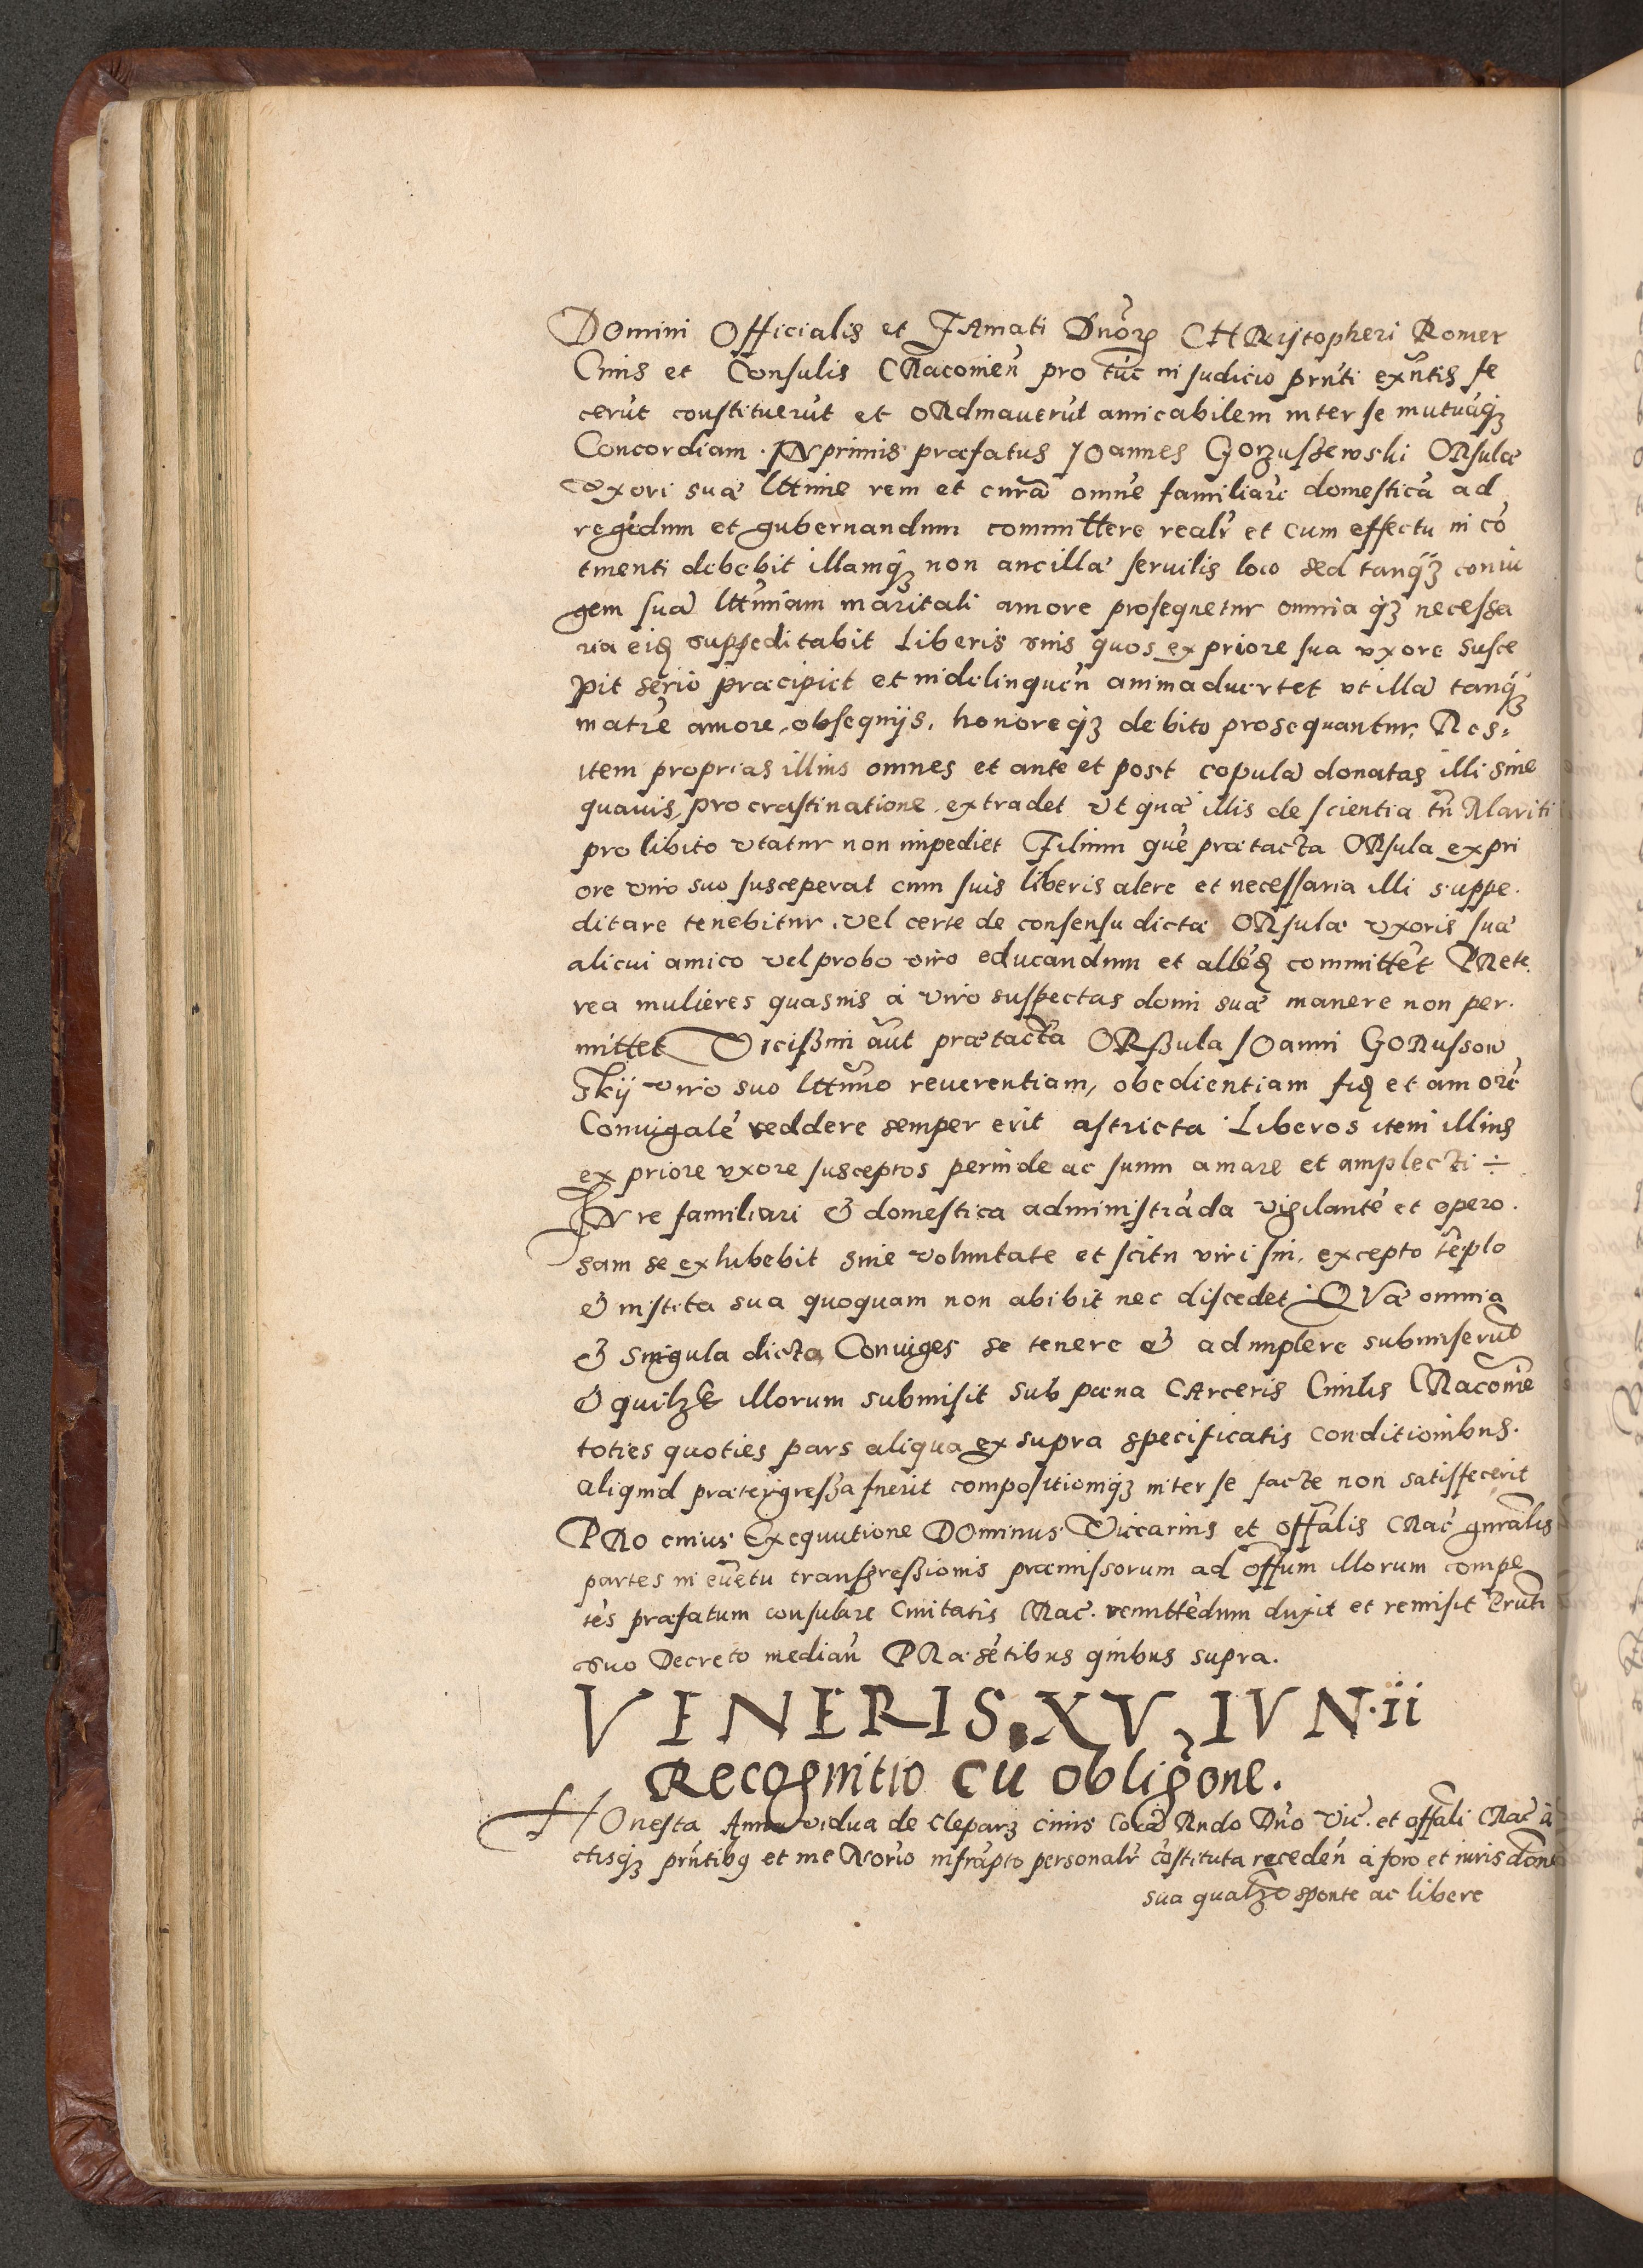 DOmini Officialis et FAmati Dnōrꝫ CHRistopheri Romer
Ciuis et Consulis CRacouien̄ pro tūc in Judicio prn̄ti exn̄tis fe
cerūt constituerūt et ORdinauerūt amicabilem inter se mutuāqꝫ
Concordiam. INprimis præfatus JOannes Gorzussewski ORsulæ
vxori suæ lttimę rem et curā omnē familiarē domesticā ad
regēdum et gubernandum committere realr̄ et cum effectu in cō
tinenti debebit illamqꝫ non ancillæ seruilis loco sed tanqꝫ coniu
gem suā lttimam maritali amore prosequetur omnia qꝫ necessa
ria eiꝫ suppeditabit Liberis vnis quos ex priore sua vxore susce
pit serio præcipiet et in delinquen̄ animaduertet vt illā tanqꝫ
matrē amore, obsequijs, honoreqꝫ debito prosequantur. Res,
item proprias illius omnes et ante et post copulā donatas illi sine
quauis, procrastinatione extradet Vt quæ illis de scientia tn̄ Mariti
pro libito vtatur non impediet Filium quē prætacta ORsula ex pri
ore viro suo susceperat cum suis liberis alere et necessaria illi suppe.
ditare tenebitur, vel certe de consensu dictæ ORsulæ vxoris suæ
alicui amico vel probo viro educandum et allēꝫ committet PRæte.
rea mulieres quasuis à viro suspectas domi suæ manere non per.
mittet Vicissim aūt prætacta ORssula JOanni GORussow
skij viro suo lttimo reuerentiam, obedientiam fiꝫ et amorē
Coniugalē reddere semper erit astricta Liberos item illius
ex priore vxore susceptos perinde ac suum amare et amplecti ÷
IN re familiari & domestica administrāda vigilantē et opero.
sam se exhibebit sine voluntate et scitu viri sui, excepto tēplo
& instita sua quoquam non abibit nec discedet QVæ omnia
& singula dicta Coniuges se tenere & adimplere submiserūt
& quilzꝫ illorum submisit sub pœna CArceris Ciuilis CRacouiē
toties quoties pars aliqua ex supra specificatis conditionibus.
aliquid prætergressa fuerit compositioniqꝫ inter se factę non satisfecerit
PRO cuius Exequutione DOminus Viccarius et offālis CRac̄ gnrālis
partes in euētu transgressionis præmissorum ad offm̄ illorum compe
tēs præfatum consulare Ciuitatis CRac̄. remittēdum duxit et remisit Prn̄ti
suo Decreto median̄ PRæsētibus quibus supra.
VENERIS. XV, IVN.ii
Recognitio cū obligōne.
HOnesta Anna vidua de Cleparz ciuis corā Rndo Dn̄o Vic̄. et offāli CRac̄ a
ctisqꝫ prn̄tibꝫ et me Norio infrāpto personalr̄ cōstituta receden̄ à foro et iurisdōne
sua qualz̄ sponte ac libere